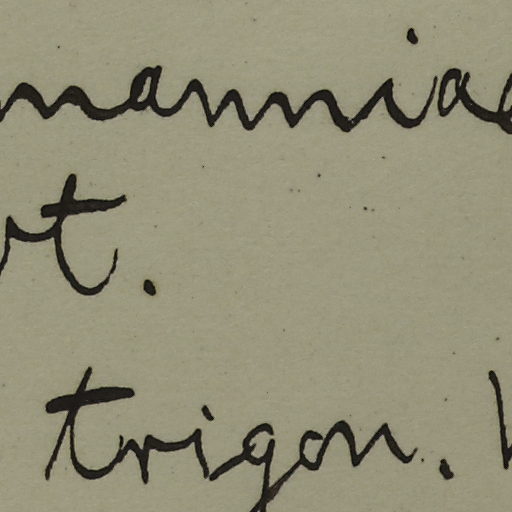 manniae
rt.
trigon.